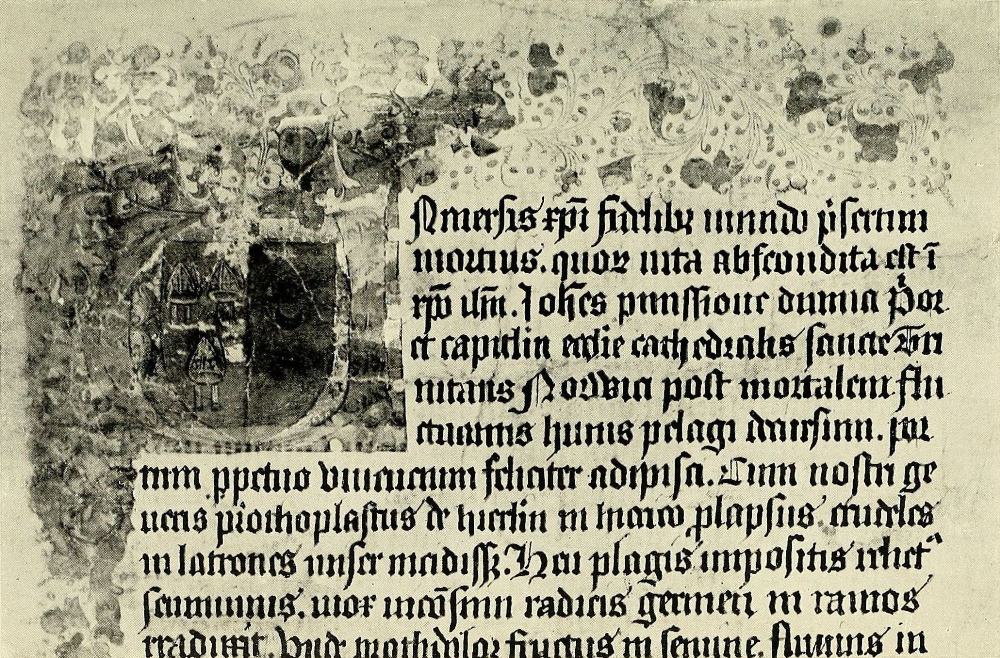 Uniuersis xpi fidelibz mundo pñscrtim
mortuis. quoꝝ uita abscondita est ĩ
xpõ ihũ. Johẽs pmissione diuina Pͥor
et capitlm ecclie cathedralis sancte Tri
nitatis Norwici post mortalem flu
ctuantis huius pelagi decursum. por
tum ppetuo viuencium feliciter adipisci. Cum nostri ge
neris prothoplastus de hierlm in hierico plapsus crudeles
in latrones miser incidiss&. Heu plagis impositis relict᷒
semiuiuis. mox
radicis germen in ramos
fructus in semine. fluuius in